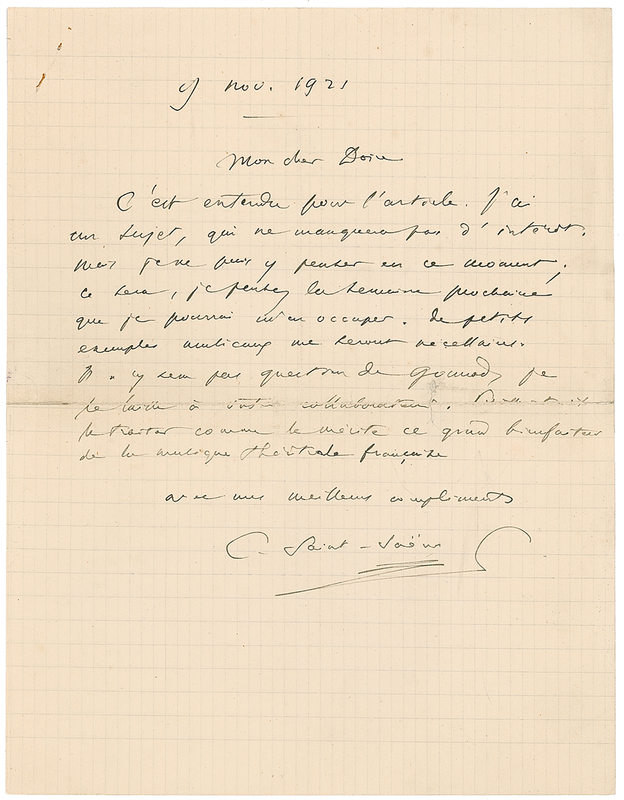 9 nov. 1921
Mon cher
C'est entendu pour l'article. J'ai
un sujet, qui ne manquera pas d'intérêt.
mais je ne puis y penser en ce moment;
ce sera, je pense, la semaine prochaine
que je pourrai m'en occuper. de petits
exemples musicaux me seront nécessaires.
Il n'y sera pas question de Gounod, je
le laisse à votre collaborateur.
le traiter comme le mérite ce grand bienfaiteur
de la musique théâtrale française
avec mes meilleurs compliments
C. Saint-Saëns